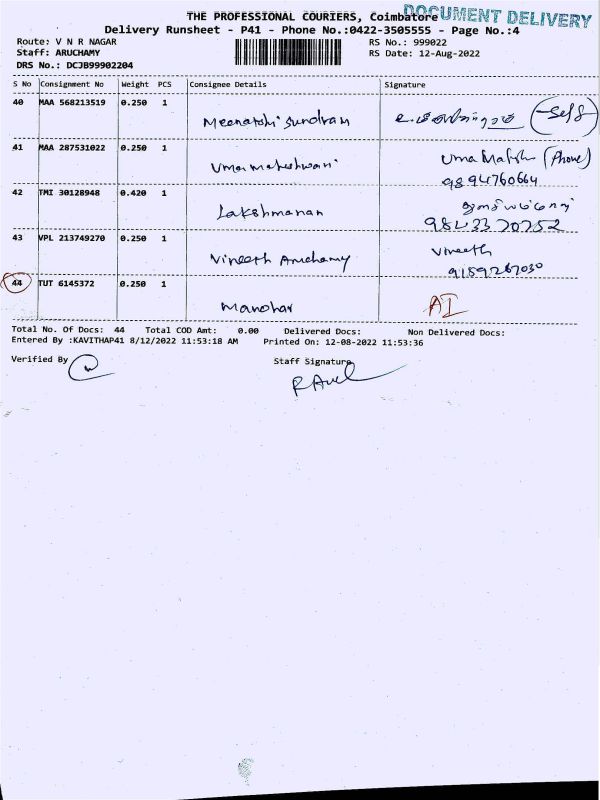 THE PROFESSIONAL COURIERS, Coimbatore
DOCUMENT DELIVERY
Delivery Runsheet - P41 - Phone No.:0422-3505555 - Page No.:4
Route: V N R NAGAR RS No.: 999022
Staff: ARUCHAMY RS Date: 12-Aug-2022
DRS No.: DCJB99902204
S No Consignment No Weight PCS Consignee Details Signature
40 MAA 568213519 0.250 1
Meenatshi Sundram (Self)
41 MAA 287531022 0.250 1
Uma Maheshwari Uma (Phone)
9894760664
42 TMI 30128948 0.420 1
Lakshmanan
9843370752
43 VPL 213749270 0.250 1 Vineeth
Vineeth Aruchamy 9159267030
44 TUT 6145372 0.250 1
Manohar AI
Total No. Of Docs: 44 Total COD Amt: 0.00 Delivered Docs: Non Delivered Docs:
Entered By :KAVITHAP41 8/12/2022 11:53:18 AM Printed On: 12-08-2022 11:53:36
Verified By Staff Signature